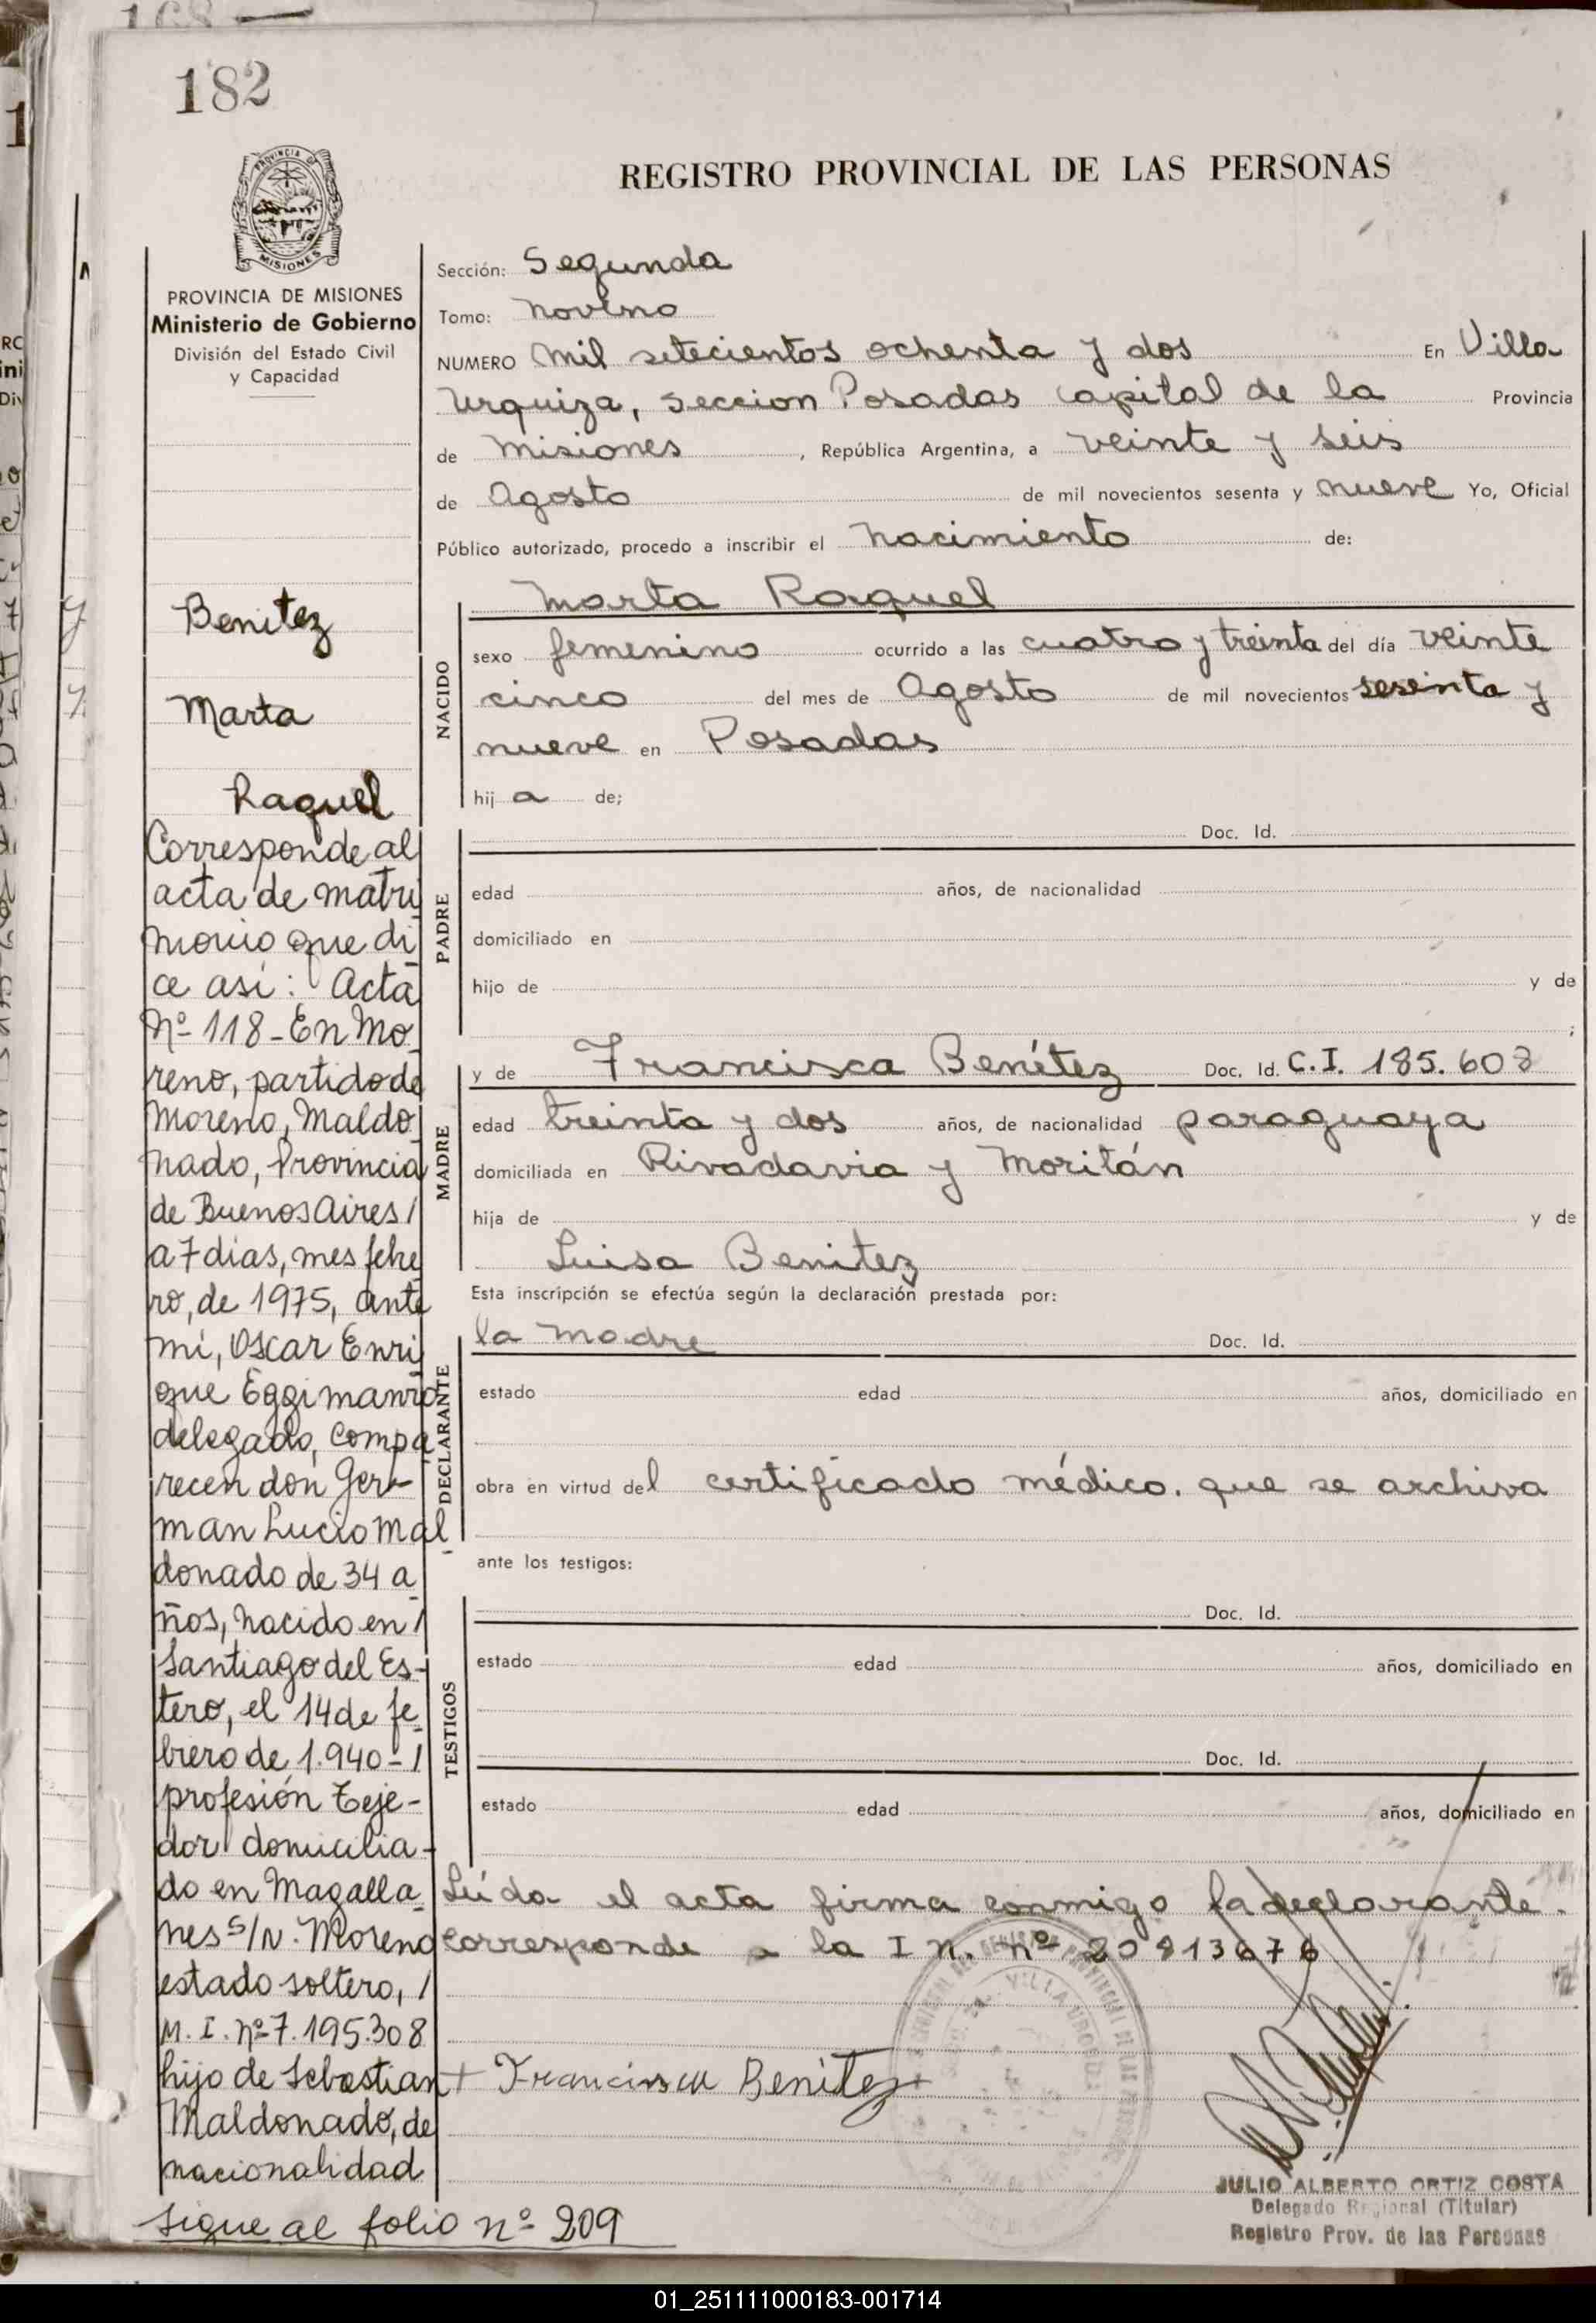 182
REGISTRO PROVINCIAL DE LAS PERSONAS
PROVINCIA DE MISIONES
Ministerio de Gobierno
División del Estado Civil
y Capacidad
Sección: Segunda
Tomo: Noveno
NUMERO Mil setecientos ochenta y dos En Villa
Urquiza, Seccion Posadas Capital de la Provincia
de Misiones, República Argentina, a veinte y seis
de Agosto de mil novecientos sesenta y nueve Yo, Oficial
Público autorizado, procedo a inscribir el Nacimiento de:
Benitez
Marta
Raquel
NACIDO
Marta Raquel
sexo femenino ocurrido a las cuatro y treinta del día veinte
cinco del mes de Agosto de mil novecientos sesenta y
nueve en Posadas
hij a de;
PADRE
Doc. Id.
edad años, de nacionalidad
domiciliado en
hijo de y de
;
MADRE
y de Francisca Benítez Doc. Id. C.I. 185.608
edad treinta y dos años, de nacionalidad paraguaya
domiciliada en Rivadavia y Moritán
hija de y de
Luisa Benitez
Esta inscripción se efectúa según la declaración prestada por:
DECLARANTE
la madre Doc. Id.
estado edad años, domiciliado en
obra en virtud del certificado médico. que se archiva
ante los testigos:
TESTIGOS
Doc. Id.
estado edad años, domiciliado en
Doc. Id.
estado edad años, domiciliado en
Leída el acta firma conmigo la declarante.
Corresponde a la I N. nº 20813676
+ Francisca Benítez +
JULIO ALBERTO ORTIZ COSTA
Delegado Regional (Titular)
Registro Prov. de las Personas
Corresponde al
acta de matri
monio que di
ce así: Acta
Nº 118-En Mo
reno, partido de
Moreno, Maldo
nado, Provincia
de Buenos Aires/
a 7 dias, mes febre
ro, de 1975, ante
mí, Oscar Enri
que Eggimann
delegado, compa
recen don Ger-
man Lucio Mal
donado de 34 a
ños, nacido en/
Santiago del Es-
tero, el 14 de fe
brero de 1.940-/
profesión Teje-
dor domicilia-
do en Magalla
nes s/N. Moreno
estado soltero, /
M. I. nº 7.195.308
hijo de Sebastian
Maldonado, de
nacionalidad
sigue al folio nº 209
01_251111000183-001714